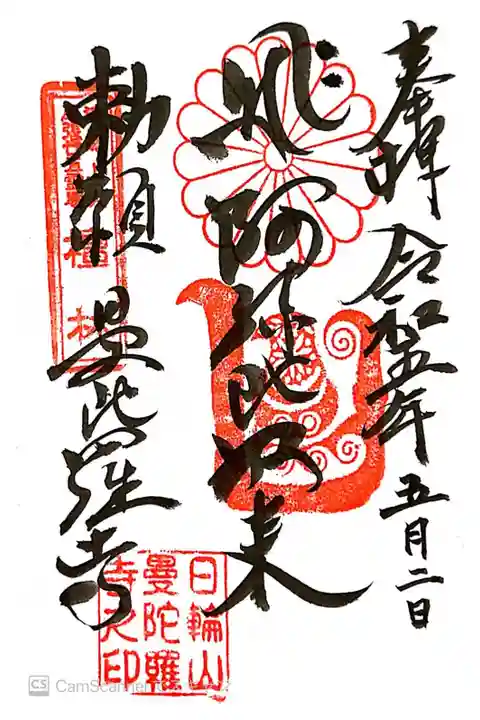 奉拝 令和五年 五月二日
阿弥陀如来
勅願 曼陀羅寺
日輪山
曼陀羅
寺之印
CamScanner